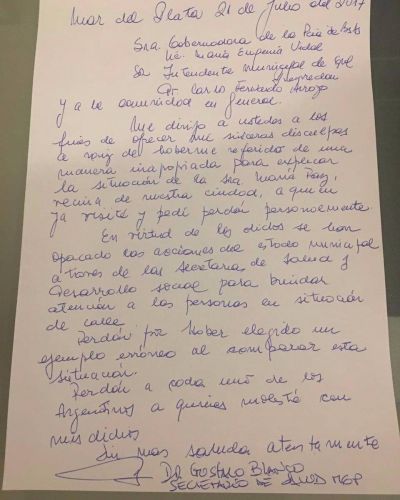 Mar del Plata 21 de Julio del 2017
Sra Gobernadora de la Pcia de Bs As
Lic. María Eugenia Vidal
Sr Intendente Municipal de Gral
Pueyrredon
Dr. Carlos Fernando Arroyo
y a la comunidad en general.
Me dirijo a ustedes a los
fines de ofrecer mis sinceras disculpas
a raiz de haberme referido de una
manera inapropiada para explicar
la situación de la Sra María Paz,
vecina de nuestra ciudad, a quien
ya visité y pedí perdón personalmente.
En virtud de los dichos se han
opacado las acciones del estado municipal
a través de las secretarías de Salud y
Desarrollo social para brindar
atención a las personas en situación
de calle
Perdón por haber elegido un
ejemplo erróneo al comparar esta
situación.
Perdón a cada uno de los
Argentinos a quienes molesté con
mis dichos
Sin mas saluda atentamente
Dr GUSTAVO BLANCO
SECRETARIO DE SALUD MGP